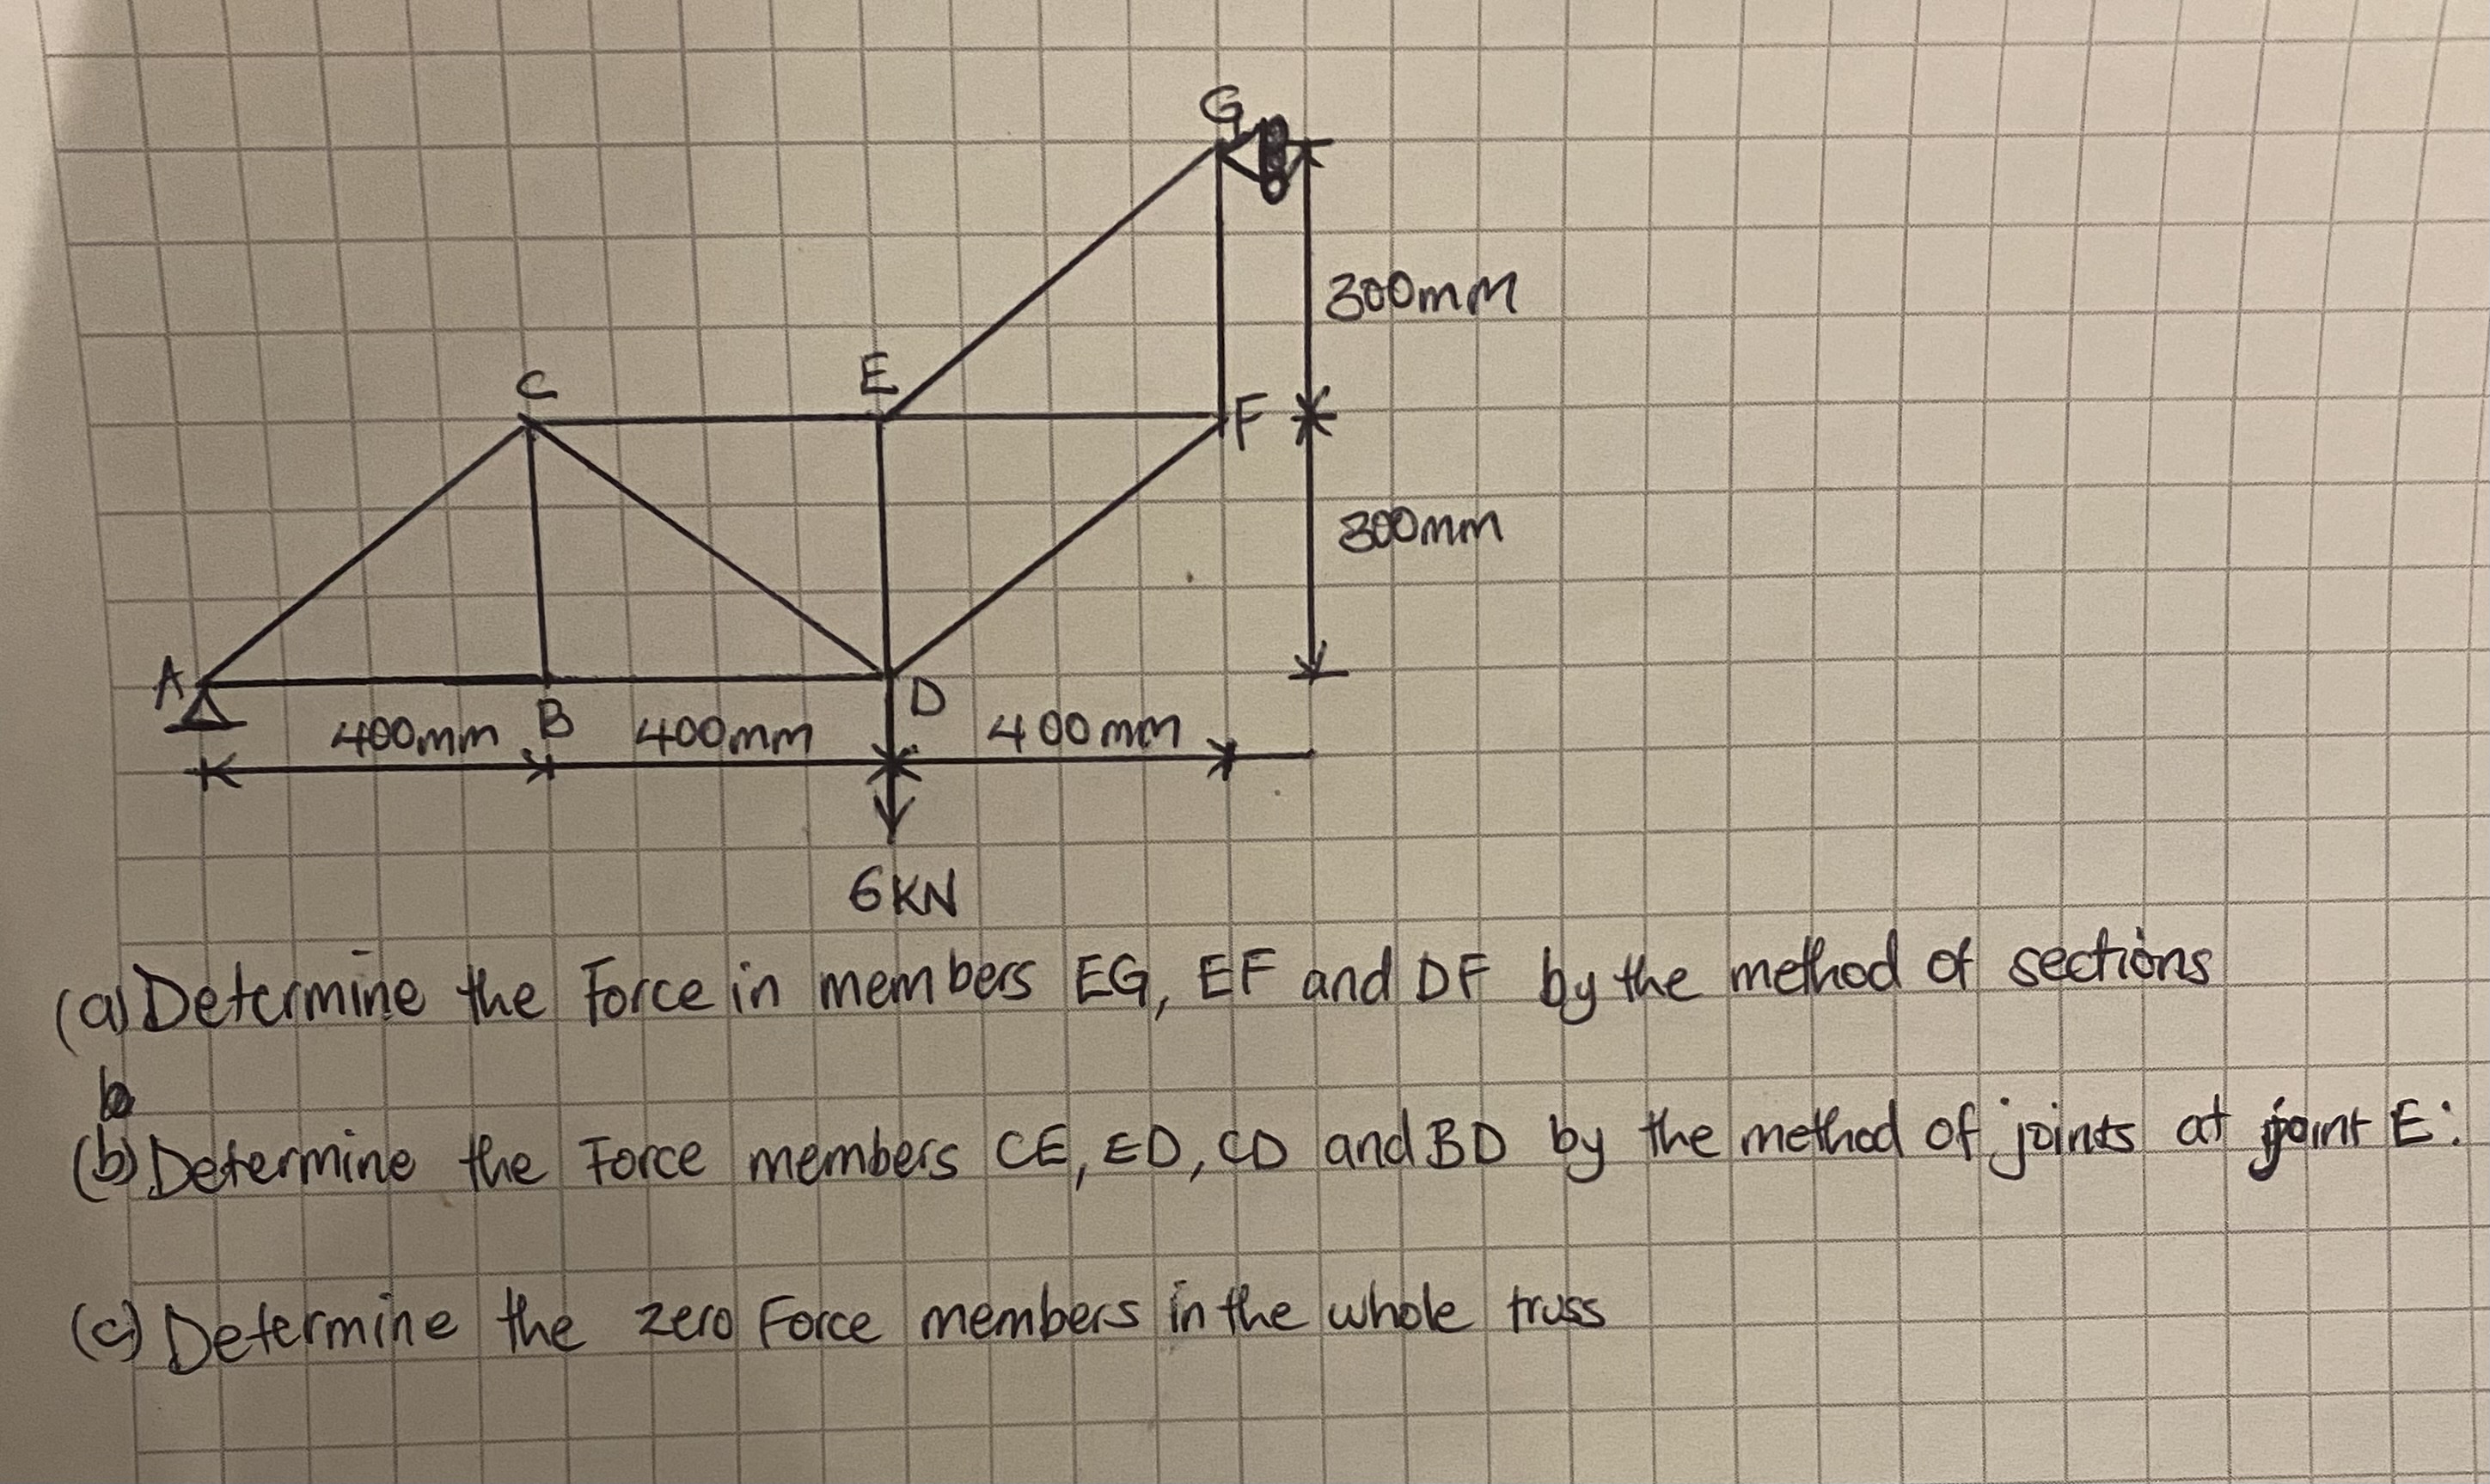 G
300mm
C
E
F
300mm
A
B
D
400mm
400mm
400mm
6KN
(a) Determine the Force in members EG, EF and DF by the method of sections
b
(b) Determine the Force members CE, ED, CD and BD by the method of joints at joint E:
(c) Determine the zero Force members in the whole truss